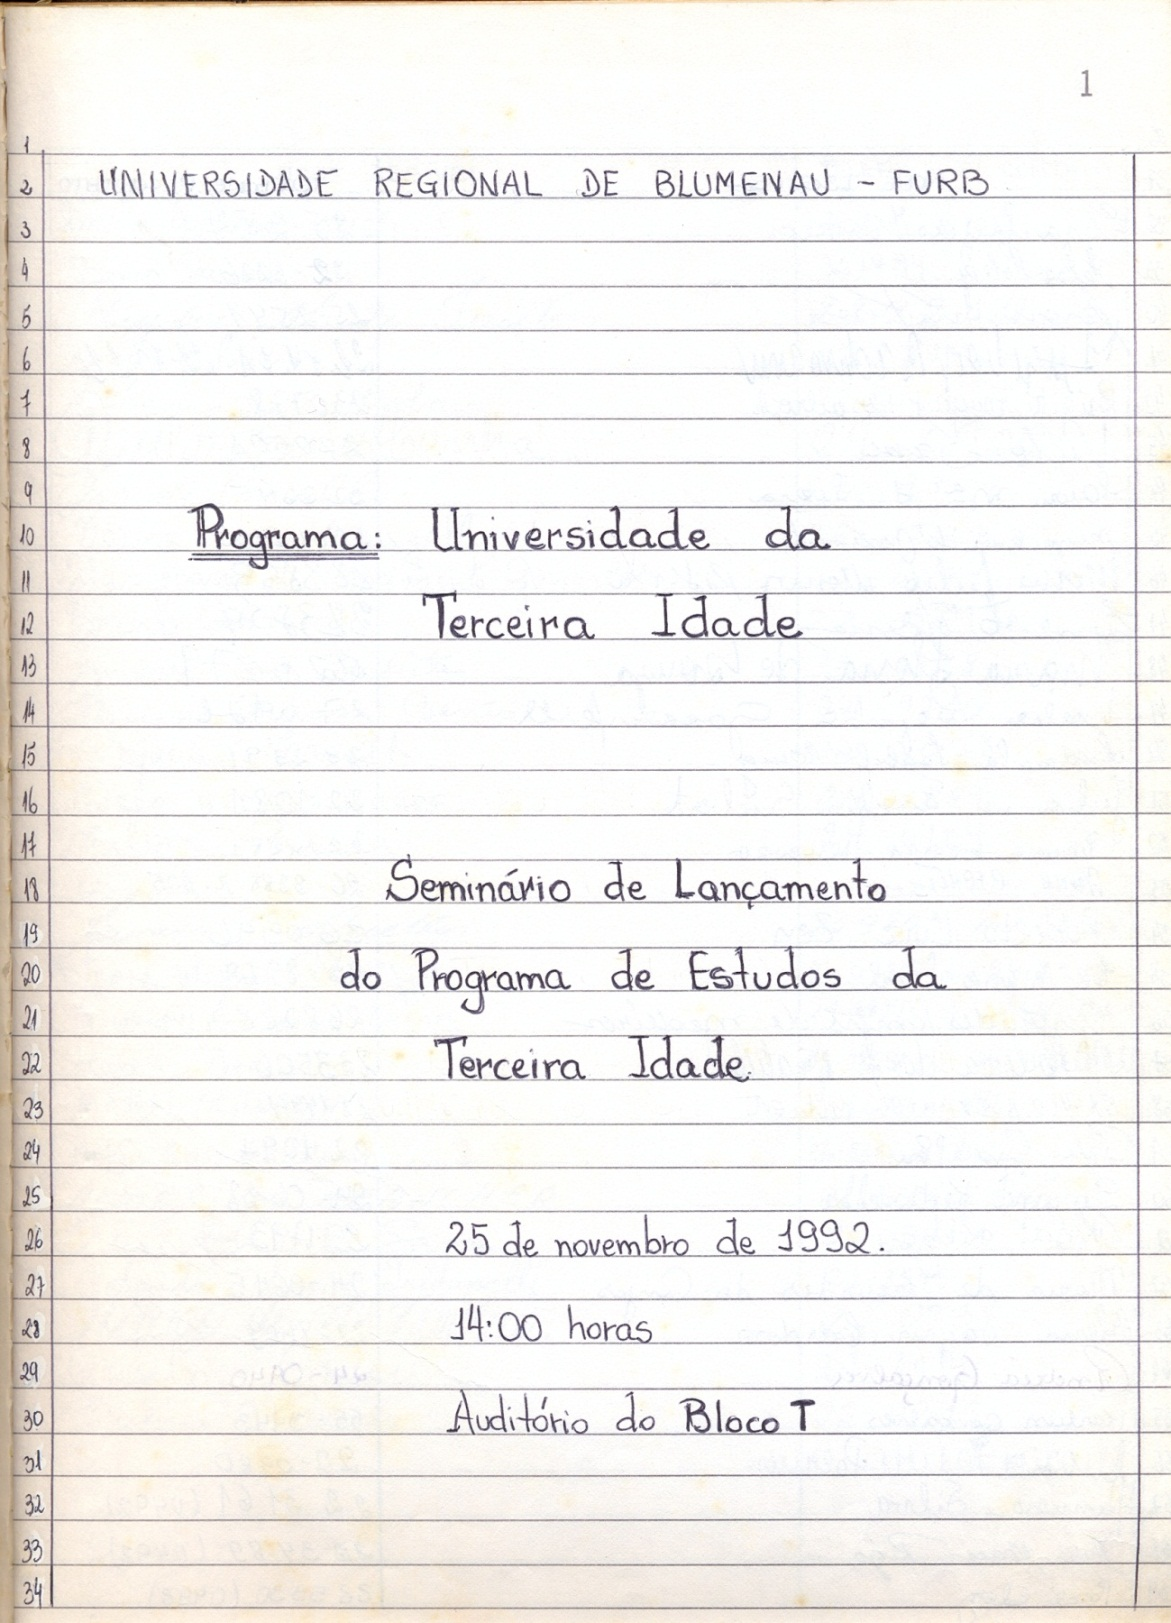 1
1
2 UNIVERSIDADE REGIONAL DE BLUMENAU - FURB
3
4
5
6
7
8
9
10 Programa: Universidade da
11
12 Terceira Idade
13
14
15
16
17
18 Seminário de Lançamento
19
20 do Programa de Estudos da
21
22 Terceira Idade.
23
24
25
26 25 de novembro de 1992.
27
28 14:00 horas
29
30 Auditório do Bloco T
31
32
33
34